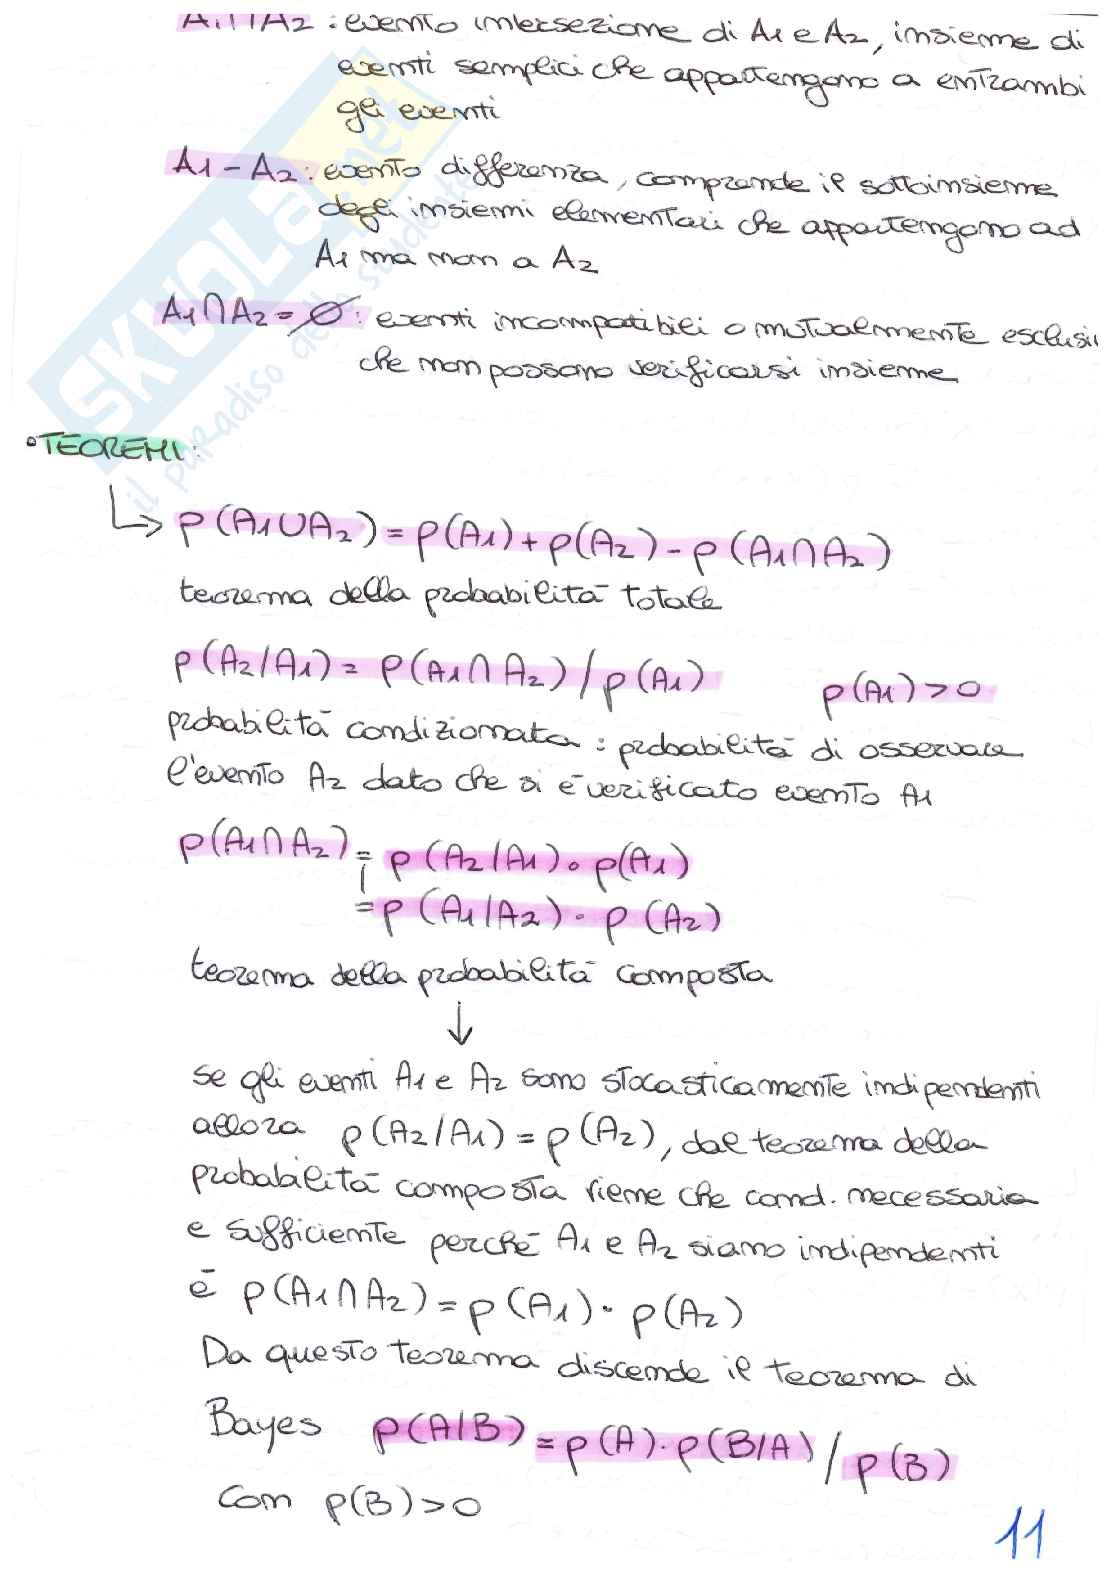 A1∩A2 : evento intersezione di A1 e A2, insieme di
eventi semplici che appartengono a entrambi
gli eventi
A1 - A2 : evento differenza, comprende il sottoinsieme
degli insiemi elementari che appartengono ad
A1 ma non a A2
A1∩A2 = ∅ : eventi incompatibili o mutualmente esclusivi
che non possono verificarsi insieme
• TEOREMI :
↳ p(A1∪A2) = p(A1) + p(A2) - p(A1∩A2)
teorema della probabilità totale
p(A2/A1) = p(A1∩A2) / p(A1) p(A1) > 0
probabilità condizionata : probabilità di osservare
l'evento A2 dato che si è verificato evento A1
p(A1∩A2) = p(A2/A1) · p(A1)
= p(A1/A2) · p(A2)
teorema della probabilità composta
↓
se gli eventi A1 e A2 sono stocasticamente indipendenti
allora p(A2/A1) = p(A2), dal teorema della
probabilità composta viene che cond. necessaria
e sufficiente perché A1 e A2 siano indipendenti
è p(A1∩A2) = p(A1) · p(A2)
Da questo teorema discende il teorema di
Bayes p(A/B) = p(A) · p(B/A) / p(B)
con p(B) > 0
11
SKUOLA.net
il paradiso dello studente